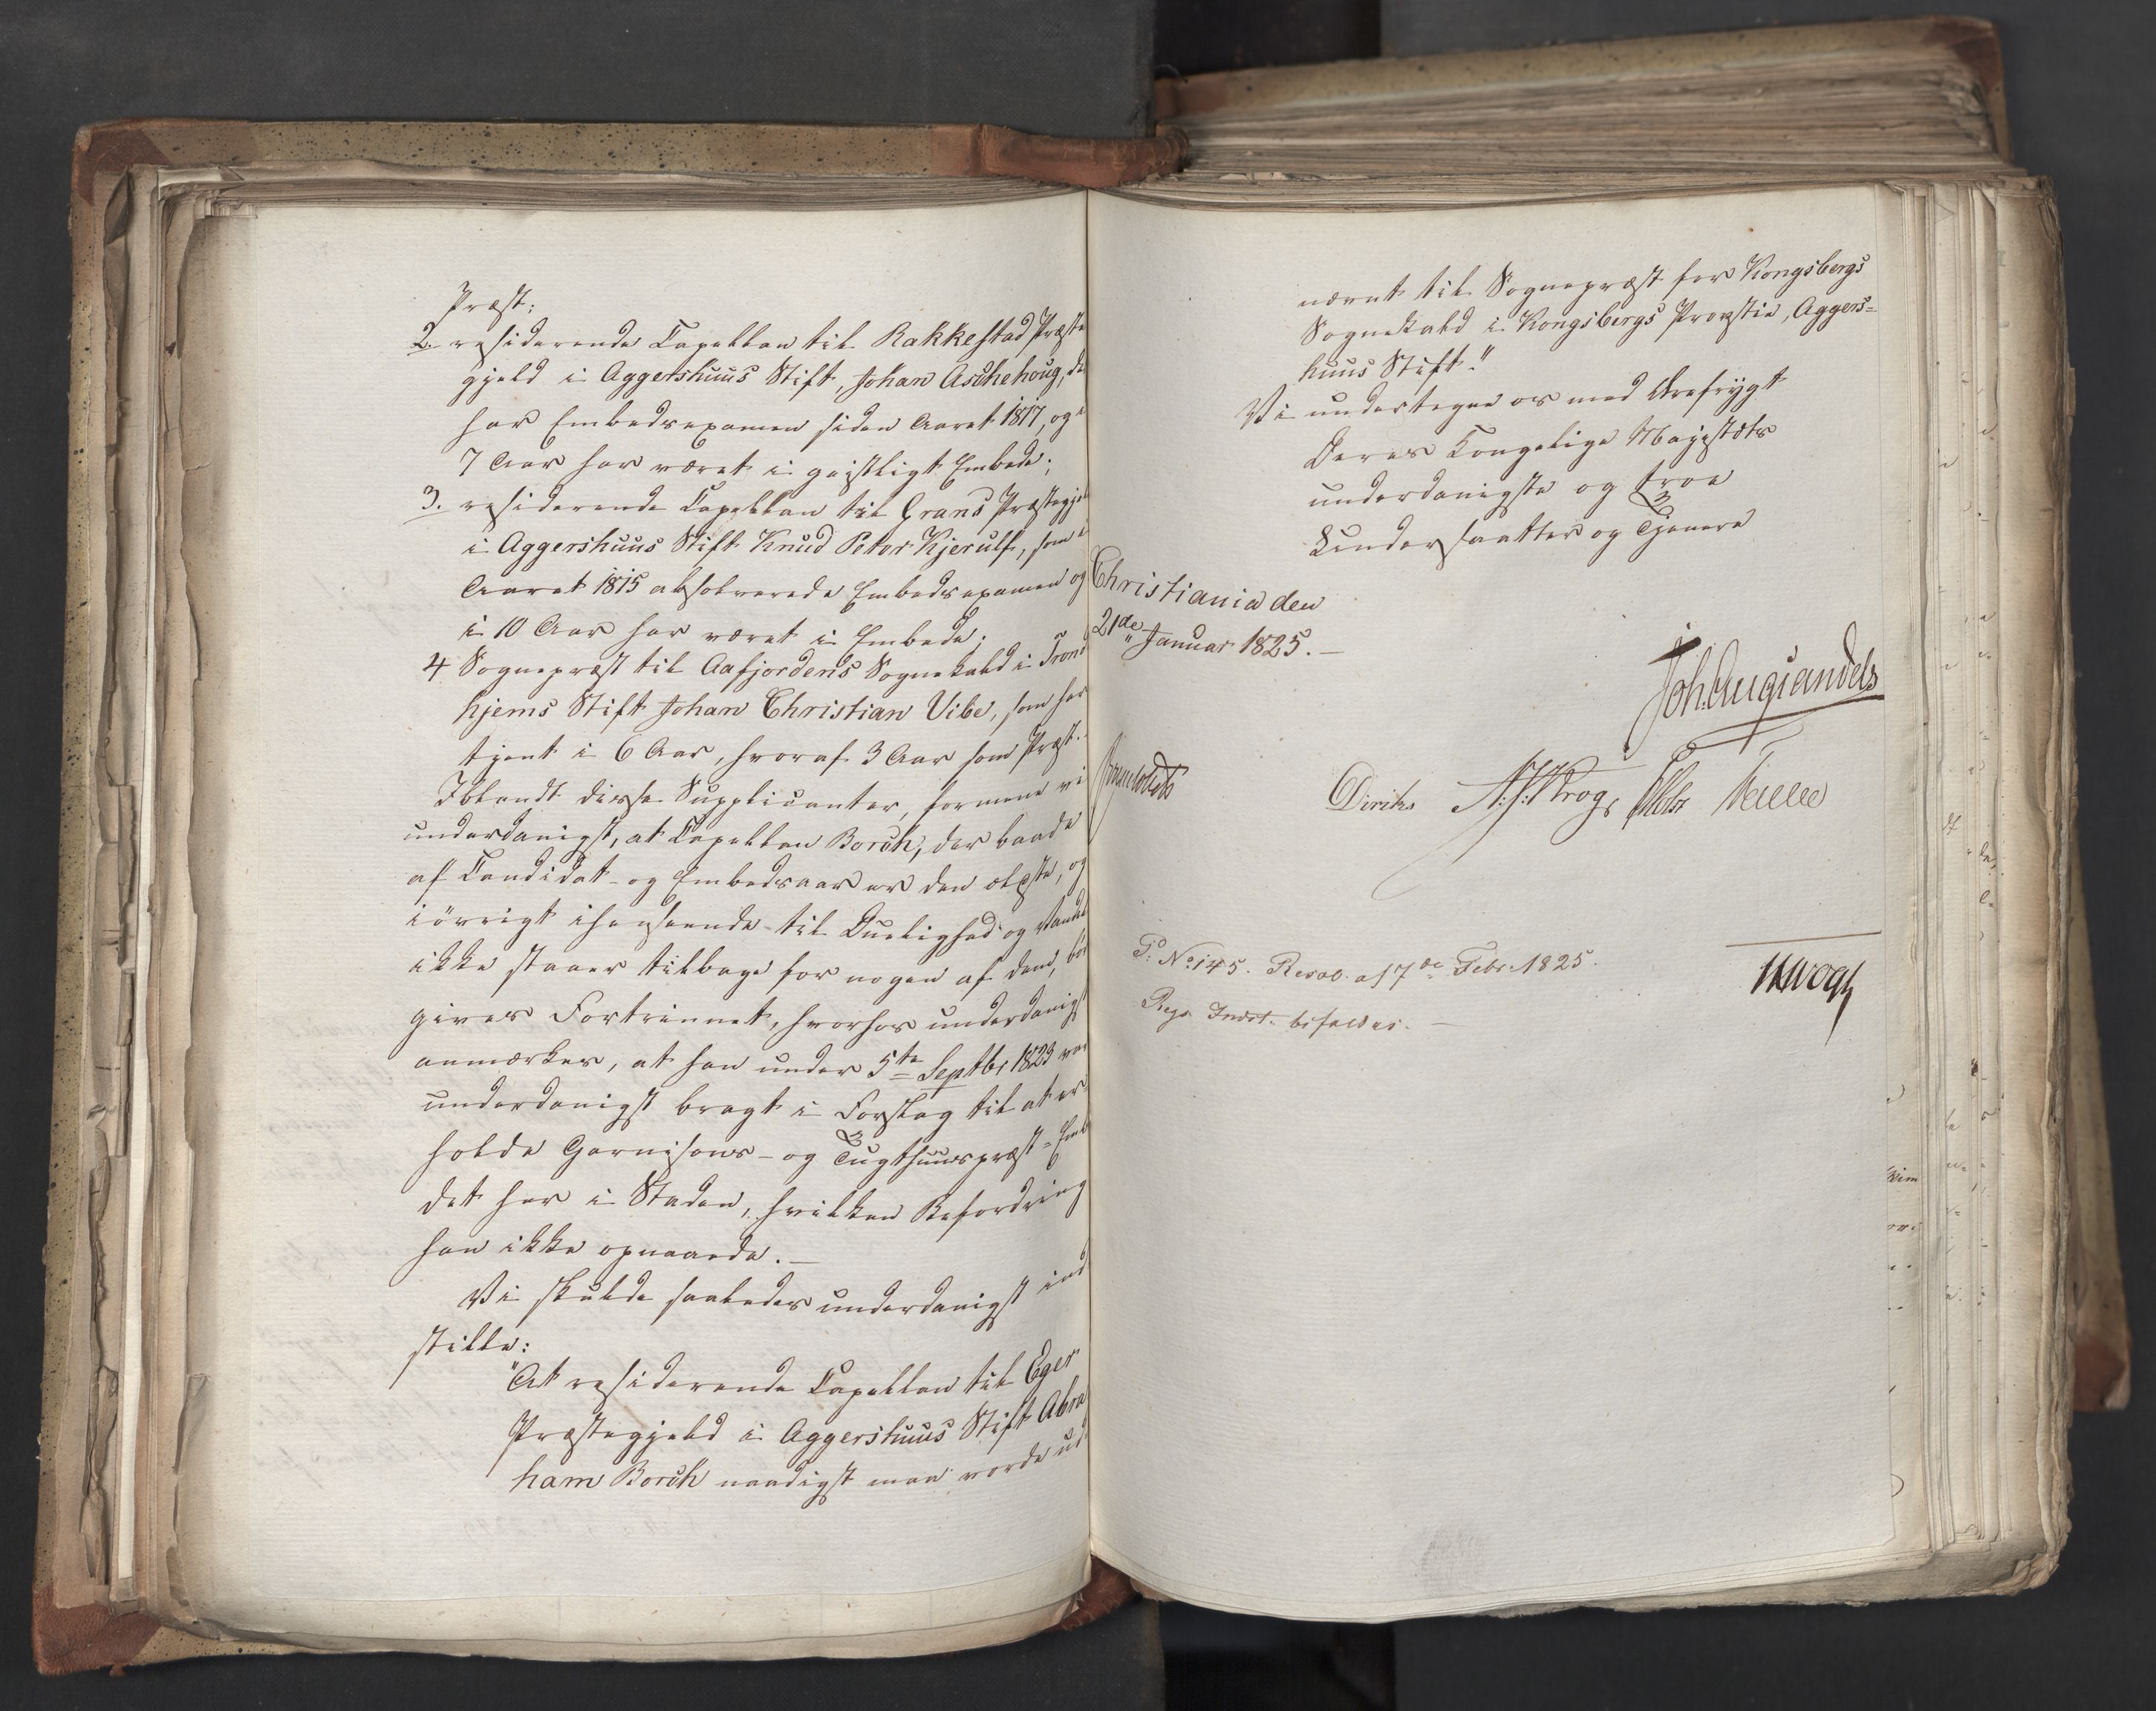 Præst;
2. residerende Capellan til Rakkestad Præste
gjeld i Aggershuus Stift, Johan Aschehoug, de
har Embedsexamen siden Aaret 1817, og i
7 Aar har været i geistligt Embede;
3. residerende Capellan til Grans Præstegje
i Aggershuus Stift Knud Peter Kjerulf, som i
Aaret 1815 absolverede Embedsexamen og
i 10 Aar har været i Embede;
4 Sognepræst til Aafjordens Sognekald i Trond
hjems Stift Johan Christian Vibe, som har
tjent i 6 Aar, hvoraf 3 Aar som Præst.
Iblandt disse Supplicanter, formene vi
underdanigst, at Capellan Borch, der baade
af Candidat- og Embedsaar er den ældste, og
iövrigt ihenseende til Duelighed og Vandel
ikke staaer tilbage for nogen af dem, bör
gives Fortrinnet, hvorhos underdanigst
anmærkes, at han under 5te Septbr 1823 var
underdanigst bragt i Forslag til at er
holde Garnisons- og Tugthuuspræst-Emb
det her i Staden, hvilken Befordring
han ikke opnaaede.—
Vi skulde saaledes underdanigst ind
stille:
"At residerende Capellan til Eger
Præstegjeld i Aggershuus Stift Abra
ham Borch naadigst maa vorde ud
nævnt til Sognepræst for Kongsbergs
Sognekald i Kongsbergs Provstie, Aggers=
huus Stift."
Vi undertegne os med Ærefrygt
Deres Kongelige Majestæts
underdanigste og troe
Undersaatter og Tjenere
Christiania den
21de Januar 1825.—
Joh. Aug. Sandels
Sommerhielm
Diriks A:J:Krog
P: No 145. Resol. af 7de Febr. 1825.
Regs Indst. bifaldes.—